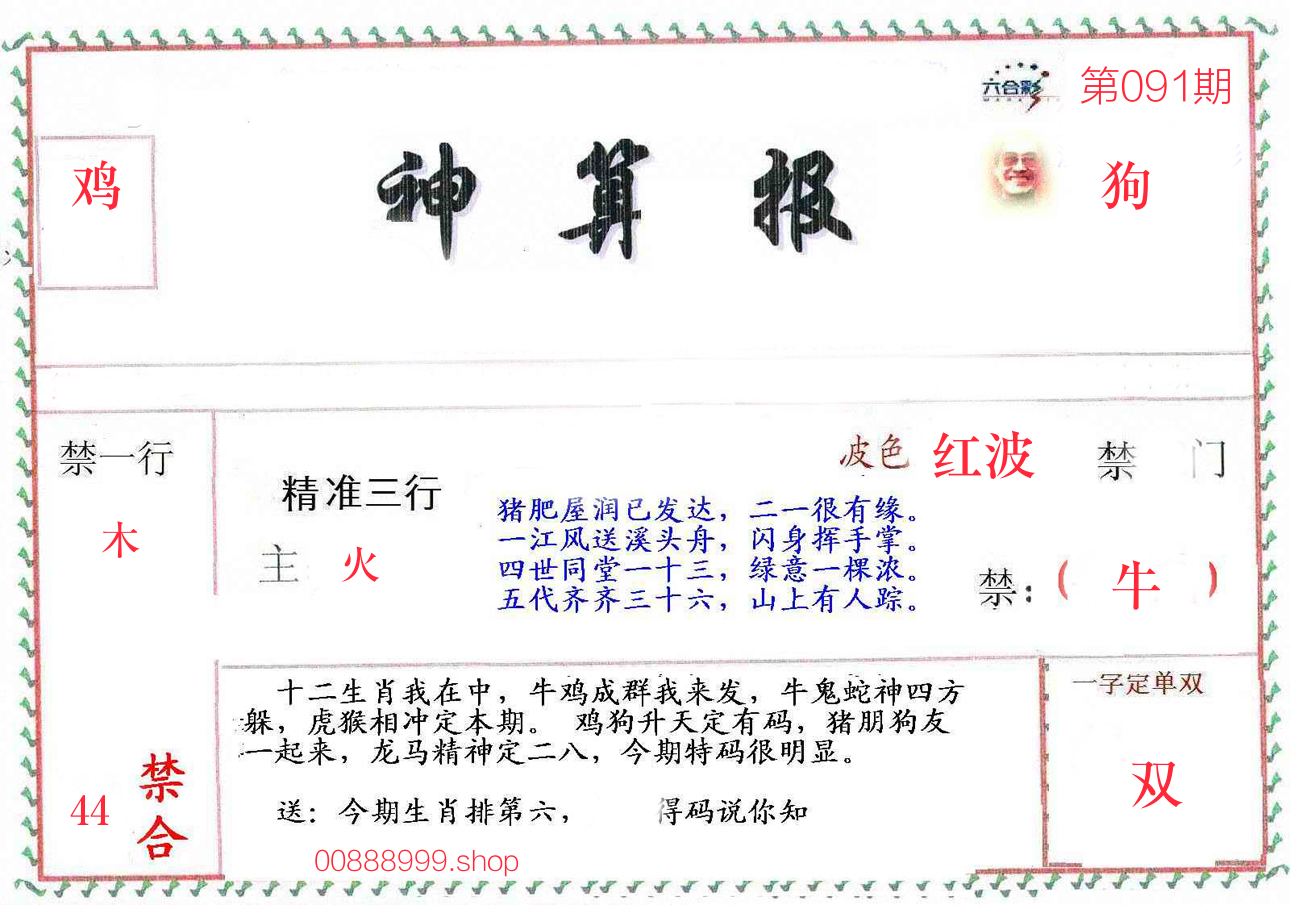 六合彩
第091期
鸡
神算报
狗
禁一行
木
精准三行
主 火
皮色 红波
禁 门
猪肥屋润已发达，二一很有缘。
一江风送溪头舟，闪身挥手掌。
四世同堂一十三，绿意一棵浓。
五代齐齐三十六，山上有人踪。
禁：（ 牛 ）
十二生肖我在中，牛鸡成群我来发，牛鬼蛇神四方
躲，虎猴相冲定本期。 鸡狗升天定有码，猪朋狗友
一起来，龙马精神定二八，今期特码很明显。
送：今期生肖排第六， 得码说你知
一字定单双
双
44
禁合
00888999.shop